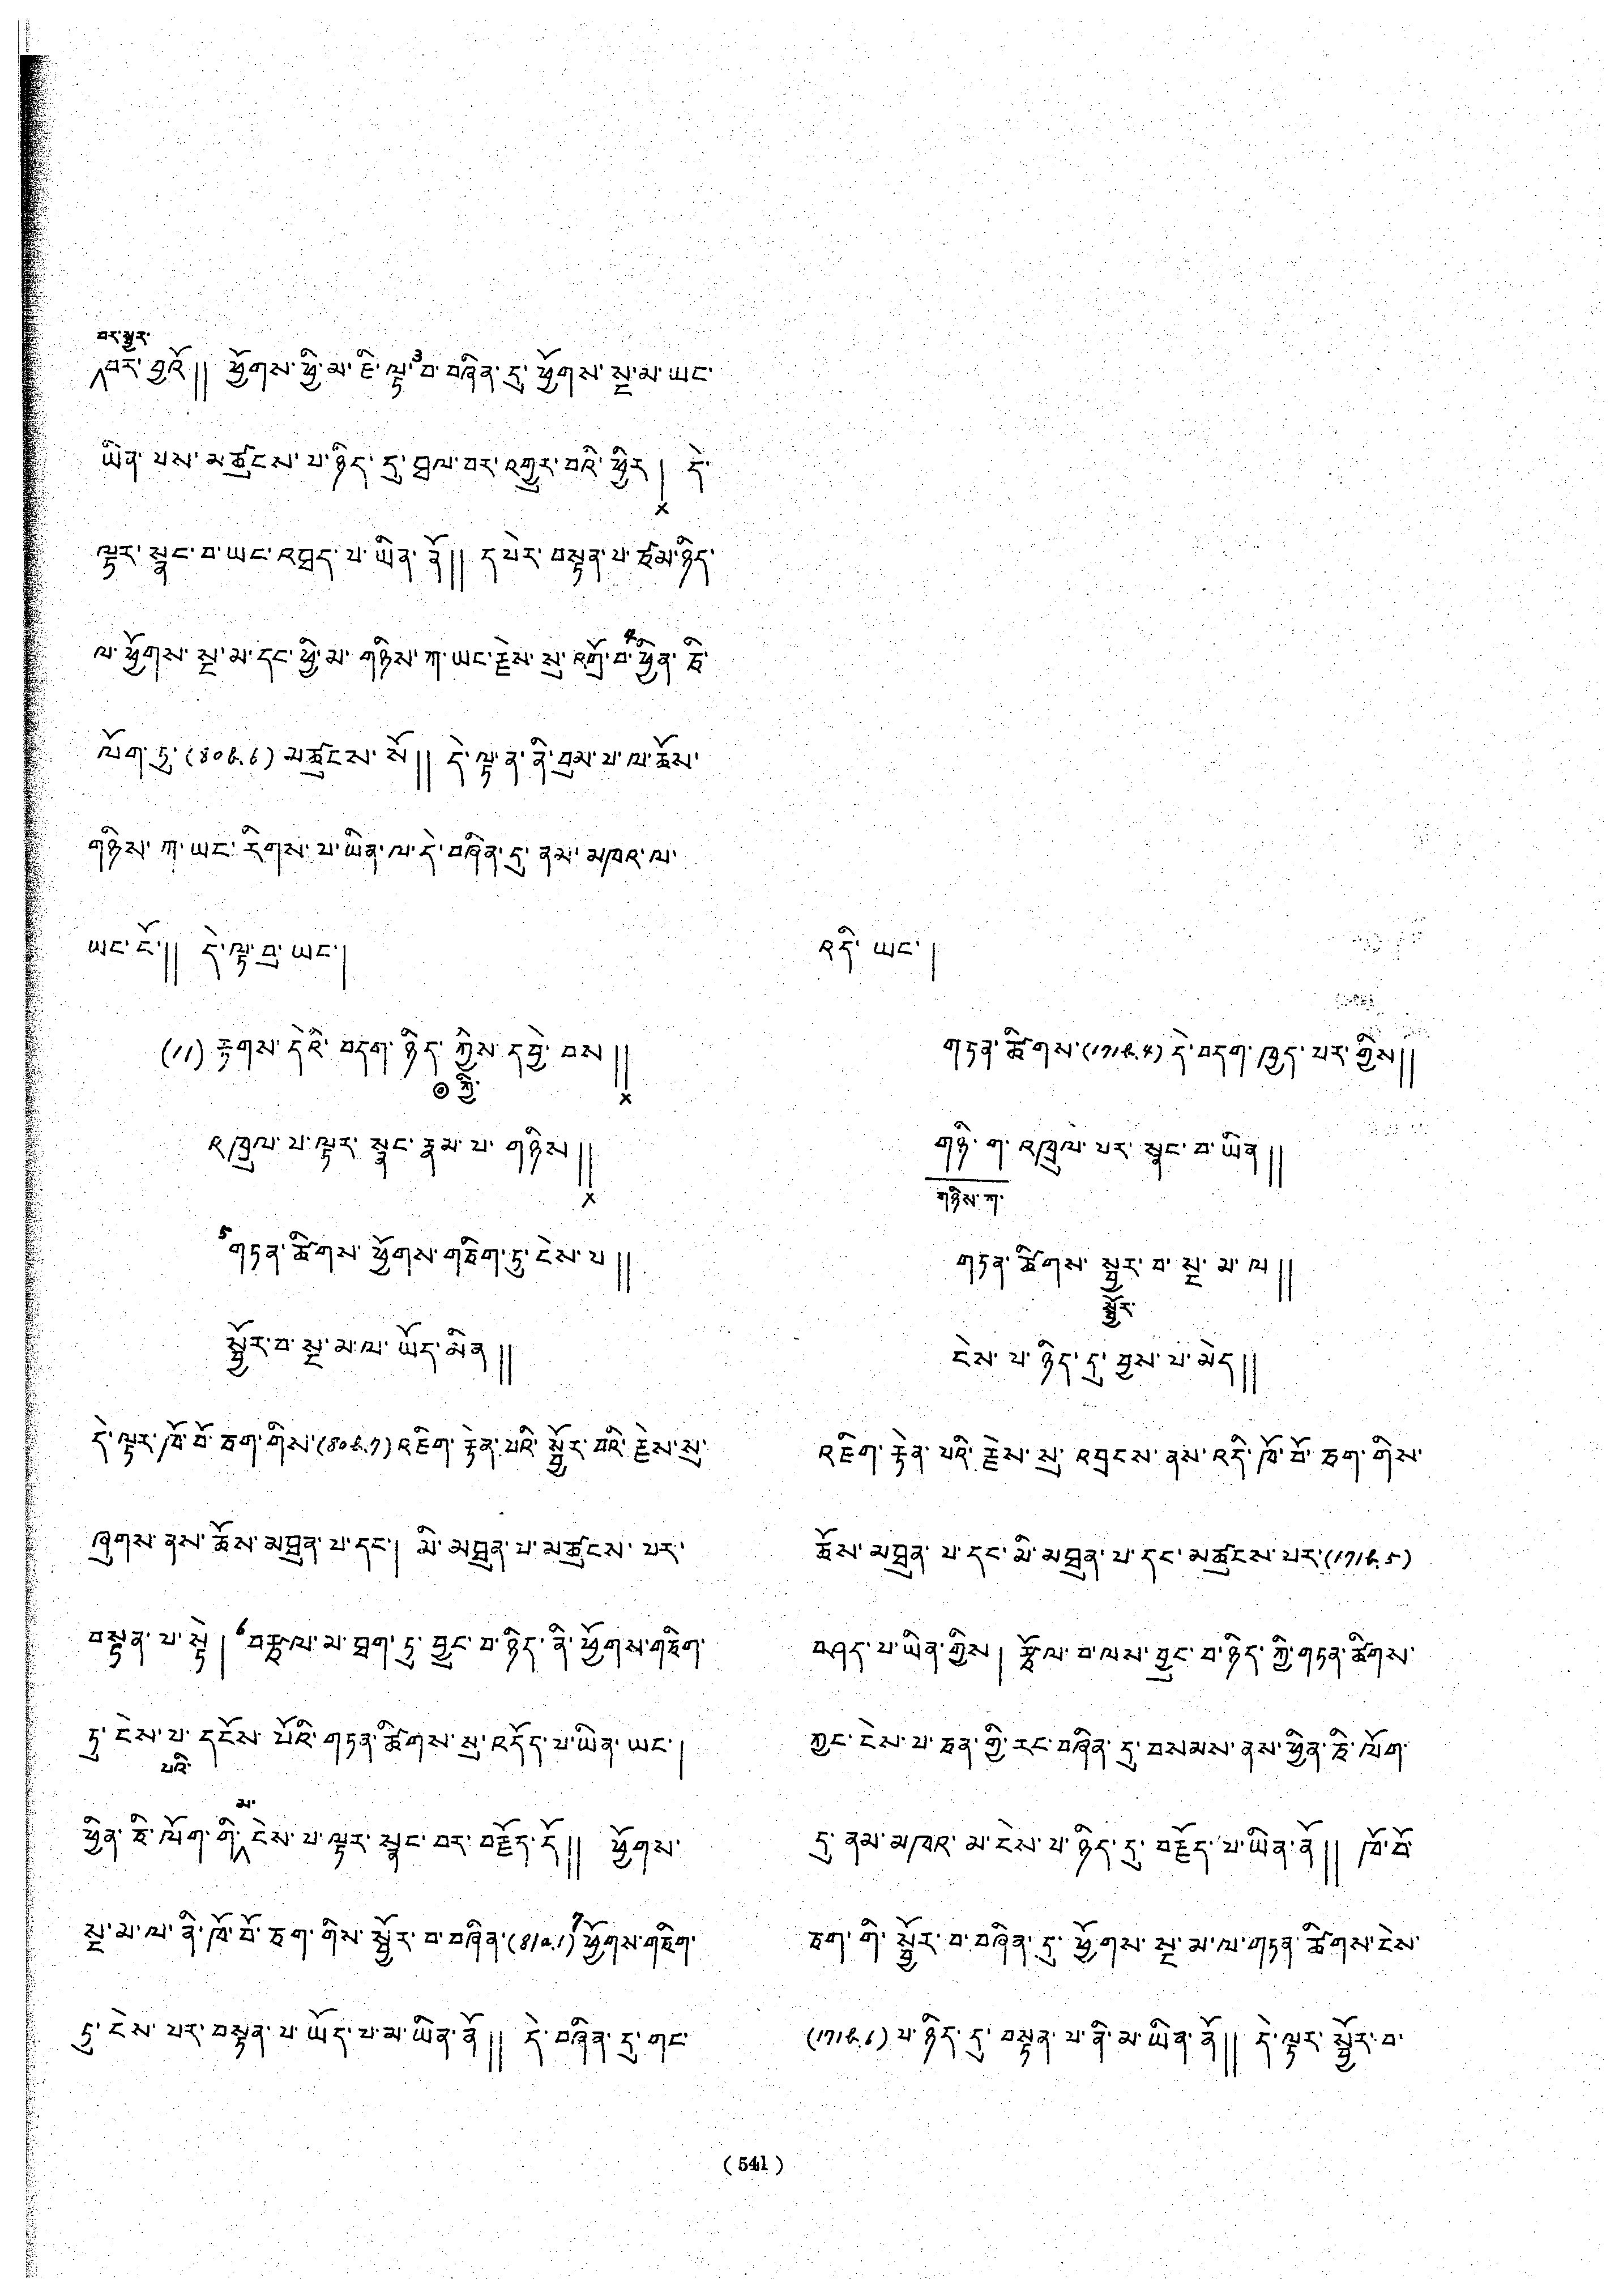 བར་སྦྱར་
བར་བྱའོ།། ཕྱོགས་ཕྱི་མ་ཇི་ལྟ་3བ་བཞིན་དུ་ཕྱོགས་སྔ་མ་ཡང་
ཡིན་པས་མཚུངས་པ་ཉིད་དུ་ཐལ་བར་འགྱུར་བའི་ཕྱིར། དེ་
x
ལྟར་སྣང་བ་ཡང་འཐད་པ་ཡིན་ནོ།། དཔེར་བསྟན་པ་ཙམ་ཉིད་
ལ་ཕྱོགས་སྔ་མ་དང་ཕྱི་མ་གཉིས་ཀ་ཡང་རྗེས་སུ་འགྲོ་བ་4ཕྱིན་ཅི་
ལོག་ཏུ་(80b.6)མཚུངས་སོ།། དེ་ལྟ་ན་ནི་བུམ་པ་ལ་ཆོས་
གཉིས་ཀ་ཡང་རིགས་པ་ཡིན་ལ་དེ་བཞིན་དུ་ནམ་མཁའ་ལ་
ཡང་ངོ་།། དེ་ལྟ་བུ་ཡང་།
(11) རྟགས་དེའི་བདག་ཉིད་ཀྱིས་དབྱེ་བས།།
◎ ཀྱི་ x
འཁྲུལ་པ་ལྟར་སྣང་རྣམ་པ་གཉིས།།
x
5གཏན་ཚིགས་ཕྱོགས་གཅིག་ཏུ་ངེས་པ།།
སྦྱོར་བ་སྔ་མ་ལ་ཡོད་མིན།།
དེ་ལྟར་ཁོ་བོ་ཅག་གིས་(80b.7)འཇིག་རྟེན་པའི་སྦྱོར་བའི་རྗེས་སུ་
ཞུགས་ནས་ཆོས་མཐུན་པ་དང་། མི་མཐུན་པ་མཚུངས་པར་
བསྟན་པ་སྟེ། 6བརྩལ་མ་ཐག་ཏུ་བྱུང་བ་ཉིད་ནི་ཕྱོགས་གཅིག་
ཏུ་ངེས་པ་དངོས་པོའི་གཏན་ཚིགས་སུ་འདོད་པ་ཡིན་ཡང་།
པའི་
མ་
ཕྱིན་ཅི་ལོག་གི་ངེས་པ་ལྟར་སྣང་བར་བརྗོད་དོ།། ཕྱོགས་
སྔ་མ་ལ་ནི་ཁོ་བོ་ཅག་གིས་སྦྱོར་བ་བཞིན་(81a.1)7ཕྱོགས་གཅིག་
ཏུ་ངེས་པར་བསྟན་པ་ཡོད་པ་མ་ཡིན་ནོ།། དེ་བཞིན་དུ་གང་
འདི་ཡང་།
གཏན་ཚིགས་(171b.4)དེ་བདག་ཁྱད་པར་གྱིས།།
གཉི་ག་འཁྲུལ་པར་སྣང་བ་ཡིན།།
གཉིས་ཀ་
གཏན་ཚིགས་སྦྱར་བ་སྔ་མ་ལ།།
སྦྱོར་
ངེས་པ་ཉིད་དུ་བྱས་པ་མེད།།
འཇིག་རྟེན་པའི་རྗེས་སུ་འབྲངས་ནས་འདི་ཁོ་བོ་ཅག་གིས་
ཆོས་མཐུན་པ་དང་མི་མཐུན་པ་དང་མཚུངས་པར་(171b.5)
བཤད་པ་ཡིན་གྱིས། རྩོལ་བ་ལས་བྱུང་བ་ཉིད་ཀྱི་གཏན་ཚིགས་
ཀྱང་ངེས་པ་ཅན་གྱི་རང་བཞིན་དུ་བསམས་ནས་ཕྱིན་ཅི་ལོག་
ཏུ་ནམ་མཁའ་མ་ངེས་པ་ཉིད་དུ་བརྗོད་པ་ཡིན་ནོ།། ཁོ་བོ་
ཅག་གི་སྦྱོར་བ་བཞིན་དུ་ཕྱོགས་སྔ་མ་ལ་གཏན་ཚིགས་ངེས་
(171b.6)པ་ཉིད་དུ་བསྟན་པ་ནི་མ་ཡིན་ནོ།། དེ་ལྟར་སྦྱོར་བ་
(541)